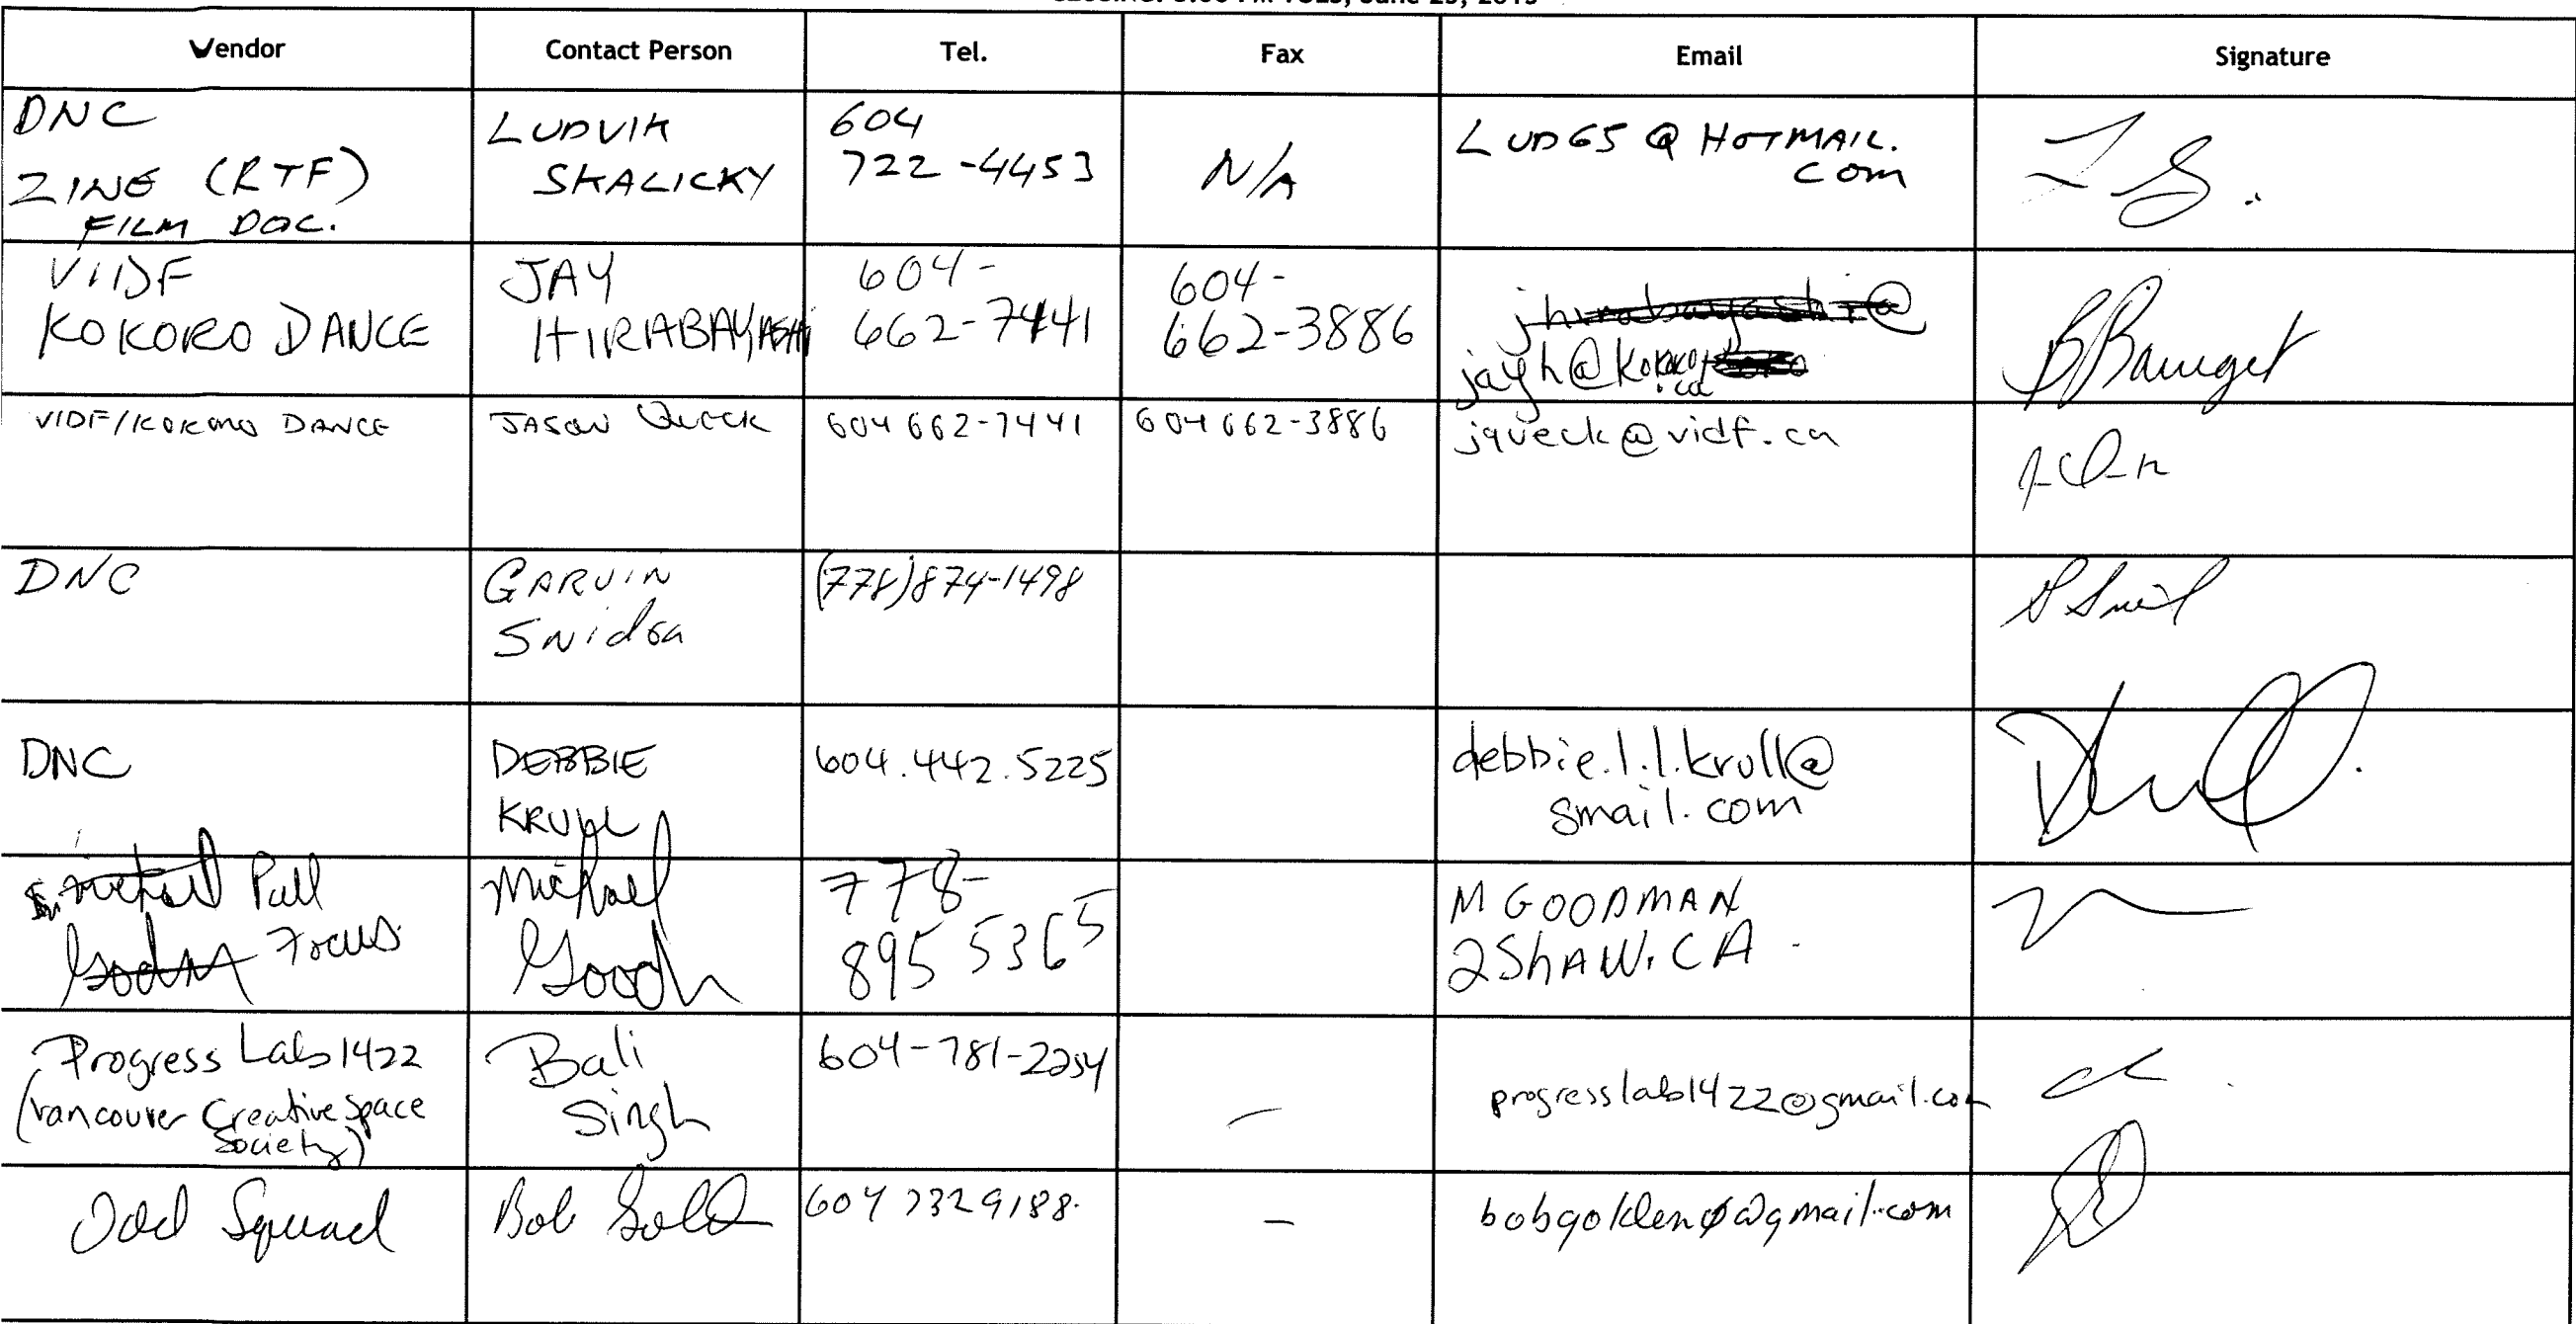 Vendor Contact Person Tel. Fax Email Signature
DNC
ZINE (RTF)
FILM DOC.
LUDVIK
SKALICKY
604
722-4453
N/A
LUD65@HOTMAIL.
com
VIDF
KOKORO DANCE
JAY
HIRABAYASHI
604-
662-7441
604-
662-3886
jhirabayashi@
jayh@kokoro
.ca
VIDF/KOKORO DANCE
JASON QUECK
604 662-7441
604 662-3886
jqueck@vidf.ca
DNC
GARVIN
Snidea
(778)874-1498
DNC
DEBBIE
KRULL
604.442.5225
debbie.l.l.krull@
gmail.com
Pull
Focus
Michael
778-
895 5365
M GOODMAN
2ShAW.CA
Progress Lab 1422
(Vancouver Creative Space
Society)
Bali
Singh
604-781-2254
—
progresslab1422@gmail.com
Odd Squad
Bob
604 7329188.
—